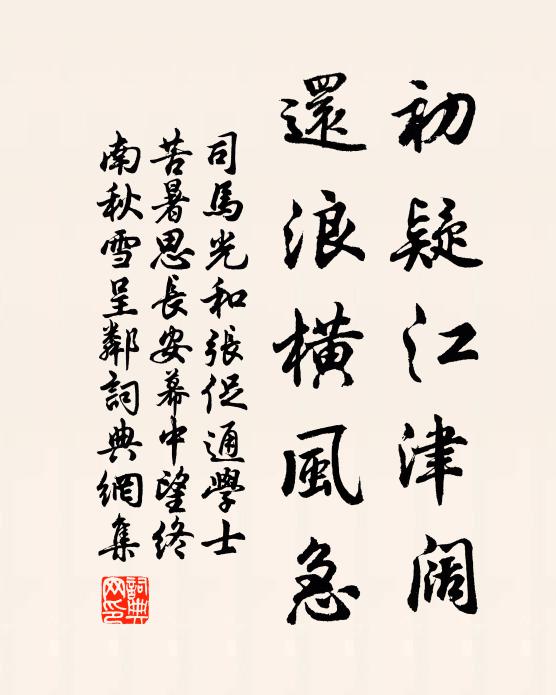 初疑江津闊
還浪橫風急
司馬光和張促通學士
苦暑思長安幕中望終
南秋雪呈鄰詞典網集
詞典網印